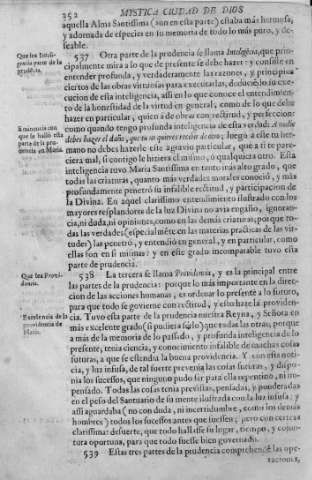 252 MYSTICA CIUDAD DE DIOS
aquella Alma Santissima (aun en esta parte) estaba más hermosa,
y adornada de especies en su memoria de todo lo más puro, y de-
seable.
Que sea Inteli-
gencia parte de la
prudécia.
537 Otra parte de la prudencia se llama Inteligēcia, que prin-
cipalmente mira a lo que de presente se debe hazer: y consiste en
entender profunda, y verdaderamente las razones, y principios
ciertos de las obras virtuosas para executarlas, deduciēdo su exe-
cucion de esta inteligencia, assi en lo que conoce el entendimien-
to de la honestidad de la virtud en general, como de lo que debe
hazer en particular, quien á de obrar con rectitud, y perfeccion:
como quando tengo profunda inteligencia de esta verdad: A nadie
debes hazer el daño, que tu no quieres recebir de otro; luego á este tu her-
mano no debes hazerle este agravio particular, que a ti te pare-
ciera mal, si contigo le hiziera el mismo, ó qualquiera otro. Esta
Eminencia con
que se halló esta
parte de la pru-
dencia en Maria.
inteligencia tuvo Maria Santissima en tanto más alto grado, que
todas las criaturas, quanto más verdades morales conoció, y más
profundamente penetró su infalible rectitud, y participacion de
la Divina. En aquel clarissimo entendimiento ilustrado con los
mayores resplandores de la luz Divina no avia engaño, ignoran-
cia, ni duda, ni opiniones, como en las demás criaturas; por que to-
das las verdades (especialmēte en las materias practicas de las vir-
tudes) las penetró, y entendió en general, y en particular, como
ellas son en si mismas: y en este grado incomparable tuvo esta
parte de prudencia.
Que sea Provi-
dencia.
538 La tercera se llama Providencia, y es la principal entre
las partes de la prudencia: porque lo más importante en la direc-
cion de las acciones humanas, es ordenar lo presente a lo futuro,
para que todo se govierne con rectitud, y esto haze la providen-
Excelencia de la
providencia de
Maria.
cia. Tuvo esta parte de la prudencia nuestra Reyna, y Señora en
más excelente grado (si pudiera serlo) que todas las otras; porque
a más de la memoria de lo passado, y profunda inteligencia de lo
presente, tenia ciencia, y conocimiento infalible de muchas cosas
futuras, a que se estendia la buena providencia. Y con esta noti-
cia, y luz infusa, de tal suerte prevenia las cosas futuras, y dispo-
nia los sucessos, que ninguno pudo ser para ella repentino, ni im-
pensado. Todas las cosas tenia previstas, pensadas, y ponderadas
en el peso del Santuario de su mente ilustrada con la luz infusa; y
assi aguardaba (no con duda, ni incertidumbre, como los demás
hombres) todos los sucessos antes que fuessen; pero con certeza
clarissima: de suerte, que todo hallasse su lugar, tiempo, y coyun-
tura oportuna, para que todo fuesse bien governado.
539 Estas tres partes de la prudencia comprehendē las ope-
raciones,